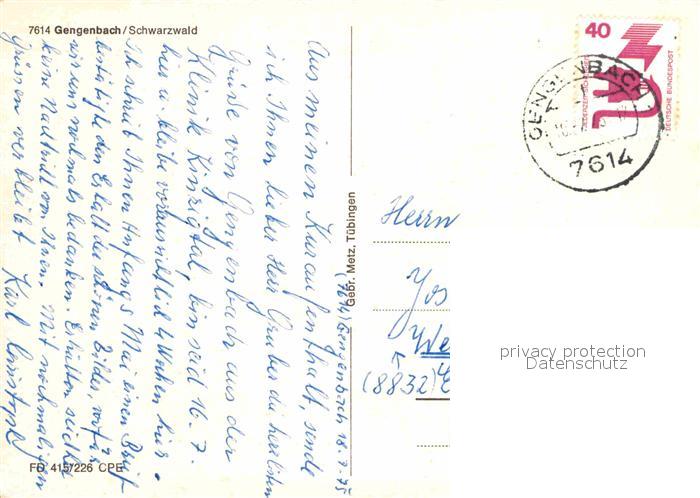 7614 Gengenbach/Schwarzwald
(7614 Gengenbach 18.7.75
Aus meinem Kuraufenthalt, sende
ich Ihnen lieber Herr Gruber die herzlichsten
Grüsse von Gengenbach aus der
Klinik Kinzigtal, bin seid 16.7.
hier u. bleibe voraussichtlich 4 Wochen hier.
Ich schrieb Ihnen Anfangs Mai einen Brief
bestätigte den Erhalt der schönen Bilder, wofür
wir uns nochmals bedanken. Erhielten seither
keine Nachricht von Ihnen. Mit nochmaligen
Grüssen verbleibt Karl
FD 415/226 CPE
Gebr. Metz, Tübingen
40
DEUTSCHE BUNDESPOST
GENGENBACH
7614
Herrn
Jos
We
(8832)
privacy protection
Datenschutz